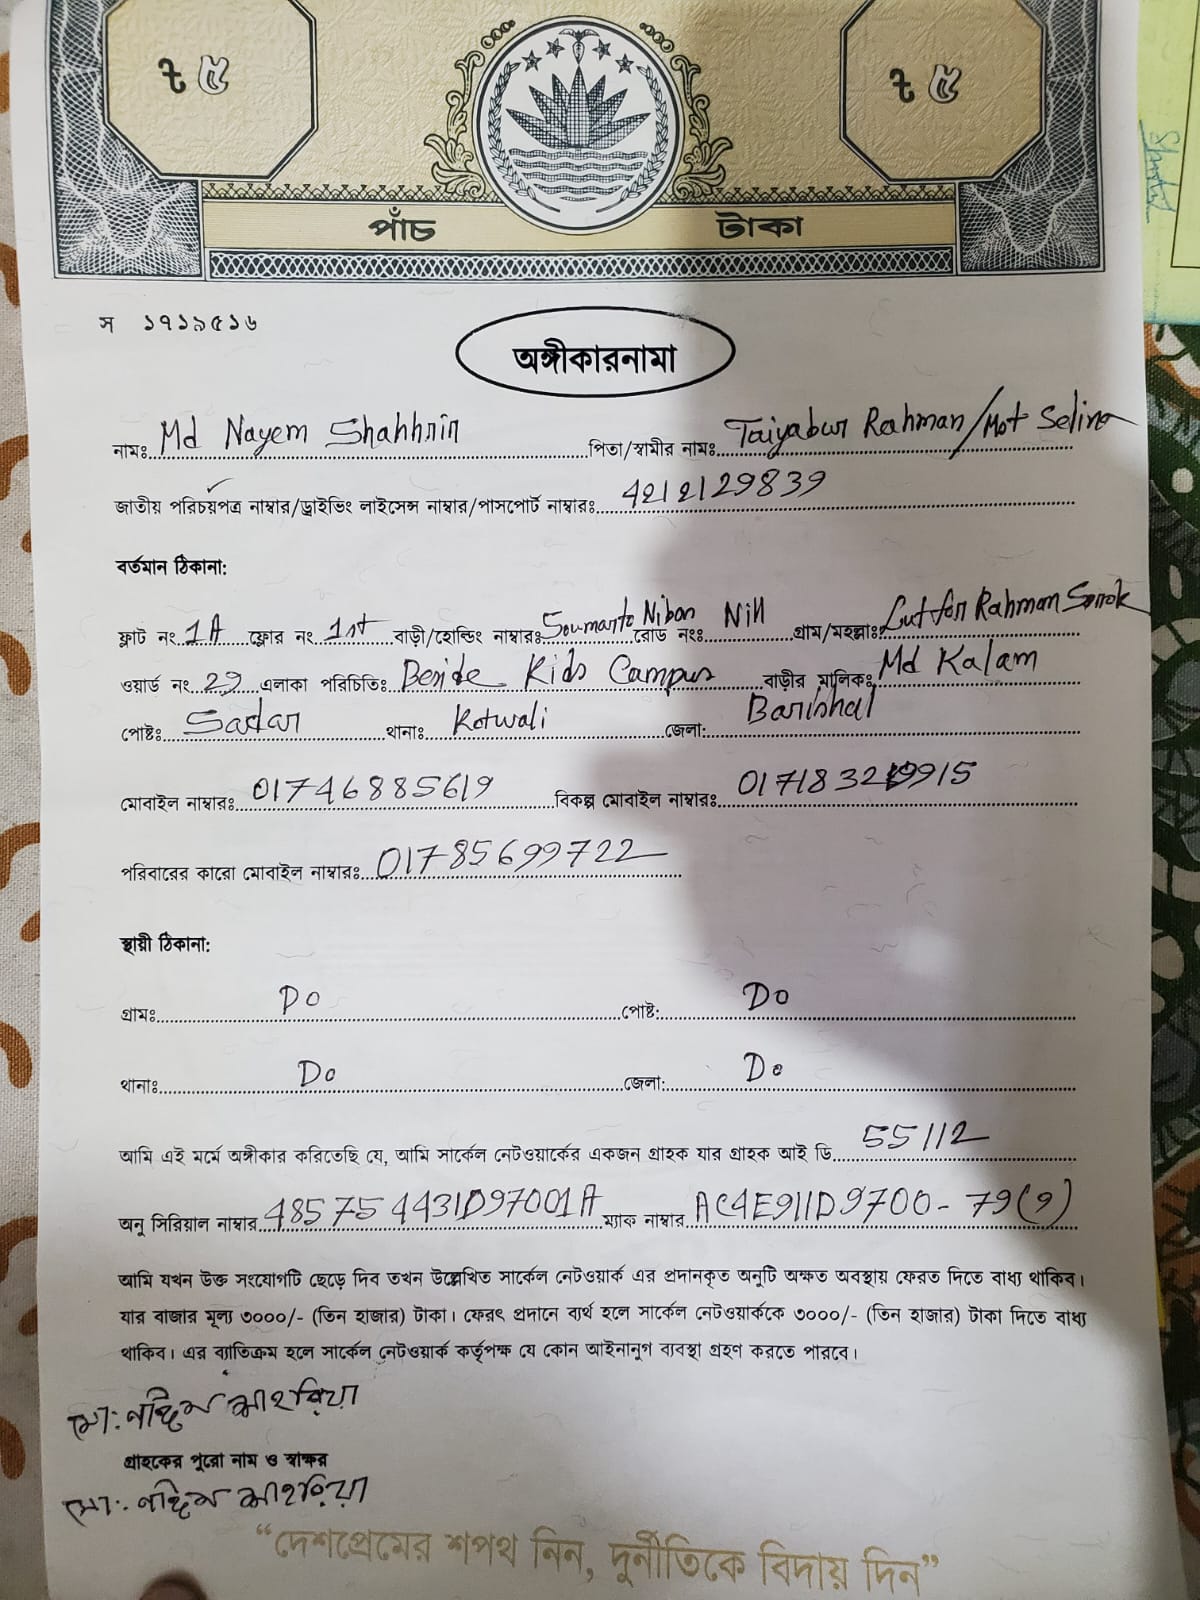 ৳ ৫ ৳ ৫
পাঁচ টাকা
স ১৭১৯৫১৬
অঙ্গীকারনামা
নামঃ Md Nayem Shahhrin পিতা/স্বামীর নামঃ Taiyabur Rahman/Mst Selina
জাতীয় পরিচয়পত্র নাম্বার/ড্রাইভিং লাইসেন্স নাম্বার/পাসপোর্ট নাম্বারঃ 4212129839
বর্তমান ঠিকানা:
ফ্লাট নং 1A ফ্লোর নং 1st বাড়ী/হোল্ডিং নাম্বারঃ Soumanto Niban রোড নংঃ Nill গ্রাম/মহল্লাঃ Lutfor Rahman Sorok
ওয়ার্ড নং 29 এলাকা পরিচিতিঃ Beside Kids Campus বাড়ীর মালিকঃ Md Kalam
পোষ্টঃ Sadar থানাঃ Kotwali জেলা: Barishal
মোবাইল নাম্বারঃ 01746885619 বিকল্প মোবাইল নাম্বারঃ
পরিবারের কারো মোবাইল নাম্বারঃ 01785699722
স্থায়ী ঠিকানা:
গ্রামঃ Do পোষ্ট: Do
থানাঃ Do জেলা: Do
আমি এই মর্মে অঙ্গীকার করিতেছি যে, আমি সার্কেল নেটওয়ার্কের একজন গ্রাহক যার গ্রাহক আই ডি 55112
অনু সিরিয়াল নাম্বার 485754431D97001A ম্যাক নাম্বার AC4E911D9700-79(9)
আমি যখন উক্ত সংযোগটি ছেড়ে দিব তখন উল্লেখিত সার্কেল নেটওয়ার্ক এর প্রদানকৃত অনুটি অক্ষত অবস্থায় ফেরত দিতে বাধ্য থাকিব।
যার বাজার মূল্য ৩০০০/- (তিন হাজার) টাকা। ফেরৎ প্রদানে ব্যর্থ হলে সার্কেল নেটওয়ার্ককে ৩০০০/- (তিন হাজার) টাকা দিতে বাধ্য
থাকিব। এর ব্যাতিক্রম হলে সার্কেল নেটওয়ার্ক কর্তৃপক্ষ যে কোন আইনানুগ ব্যবস্থা গ্রহণ করতে পারবে।
মো: নাঈম শাহরিয়া
গ্রাহকের পুরো নাম ও স্বাক্ষর
মো: নাঈম শাহরিয়া
“দেশপ্রেমের শপথ নিন, দুর্নীতিকে বিদায় দিন”